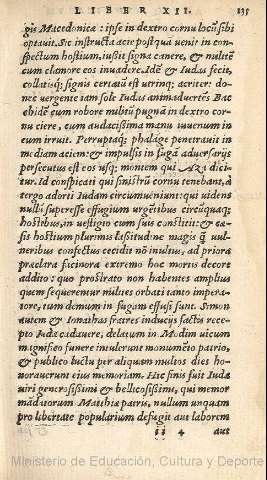 LIBER XII. 135
gis Macedonicæ: ipse in dextro cornu locũ sibi
optauit. Sic instructa acie postquã uenit in con-
spectum hostium, iussit signa canere, & militẽ
cum clamore eos inuadere. Idẽ & Iudas fecit,
collatisq; signis certatũ est utrinq; acriter: do-
nec uergente iam sole Iudas animaduertẽs Bac
chidẽ cum robore militũ pugnã in dextro cor-
nu ciere, cum audacissima manu iuuenum in
eum irruit. Perruptaq; phalãge penetrauit in
mediam aciem: & impulsis in fugã aduersarijs
persecutus est eos usq; montem qui Aza dici
tur. Id conspicati qui sinistrũ cornu tenebant, à
tergo adorti Iudam circumueniunt: qui uidens
nulli superesse effugium urgẽtibus circũquaq;
hostibus, in uestigio cum suis constitit: & cæ-
sis hostium plurimis lassitudine magis q̃ uul-
neribus confectus cecidit nõ inultus, ad priora
præclara facinora extremo hoc mortis decore
addito: quo prostrato non habentes amplius
quem sequerentur milites orbati tanto impera-
tore, tum demum in fugam effusi sunt. Simon
autem & Ionathas fratres inducijs factis rece-
pto Iudæ cadauere, delatum in Modim uicum
magnifico funere intulerunt monumẽto patrio,
& publico luctu per aliquam multos dies ho-
norauerunt eius memoriam. Hic finis fuit Iudæ
uiri generosissimi & bellicosissimi, qui memor
mãdatorum Matthiæ patris, nullum unquam
pro libertate popularium defugit aut laborem
ii 4 aut
Ministerio de Educación, Cultura y Deporte